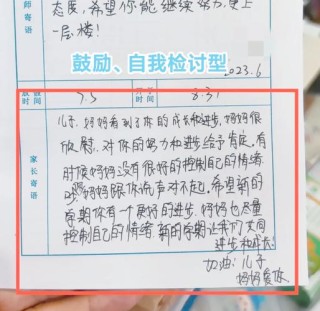 态度,希望你能继续努力,更上
一层楼!
师寄语
鼓励、自我检讨型
2023.6
放
假
时
间
7.5
开
学
时
间
8.31
家长寄语
儿子,妈妈看到了你的成长和进步,妈妈很
欣慰,对你的努力和进步给予肯定,有
时候妈妈没有很好的控制自己的情绪
妈妈跟你说声对不起,希望新的
学期你有一个更好的进步,妈妈也尽量
控制自己的情绪,新的学期让我们共同
进步和成长
加油!儿子
妈妈爱你